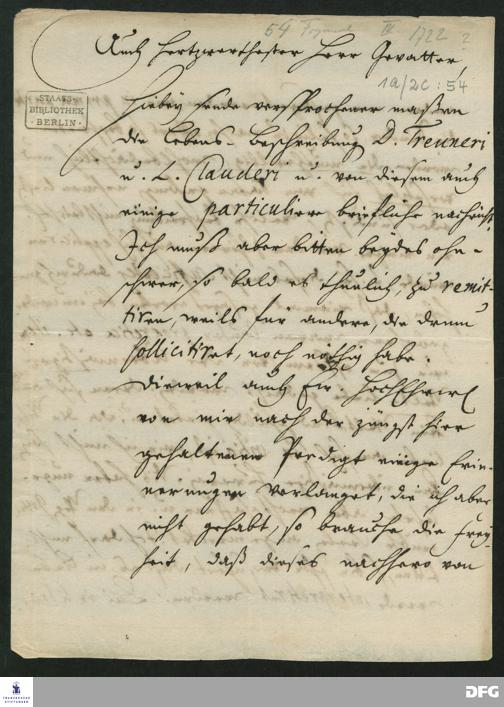 54 1722 ?
Auch Hertzwerthester Herr Gevatter,
1a/2c : 54
STAATS-
BIBLIOTHEK
· BERLIN ·
Hiebey sende versprochener maßen
die Lebens-Beschreibung D. Treuneri
u. L. Clauderi u. von diesem auch
einige particuliere briefliche nachricht.
Ich muß aber bitten beydes ohn-
schwer, so bald es thunlich, zu remit-
tiren, weils für andere, die drum
sollicitiret, noch nöthig habe.
Dieweil auch Ew. HochEhrw
von mir nach der jüngst hier
gehaltenen Predigt einige Erin-
nerungen verlanget, die ich aber
nicht gehabt, so brauche die Frey-
heit, daß dieses nachhero von
FRANCKESCHE
STIFTUNGEN
DFG